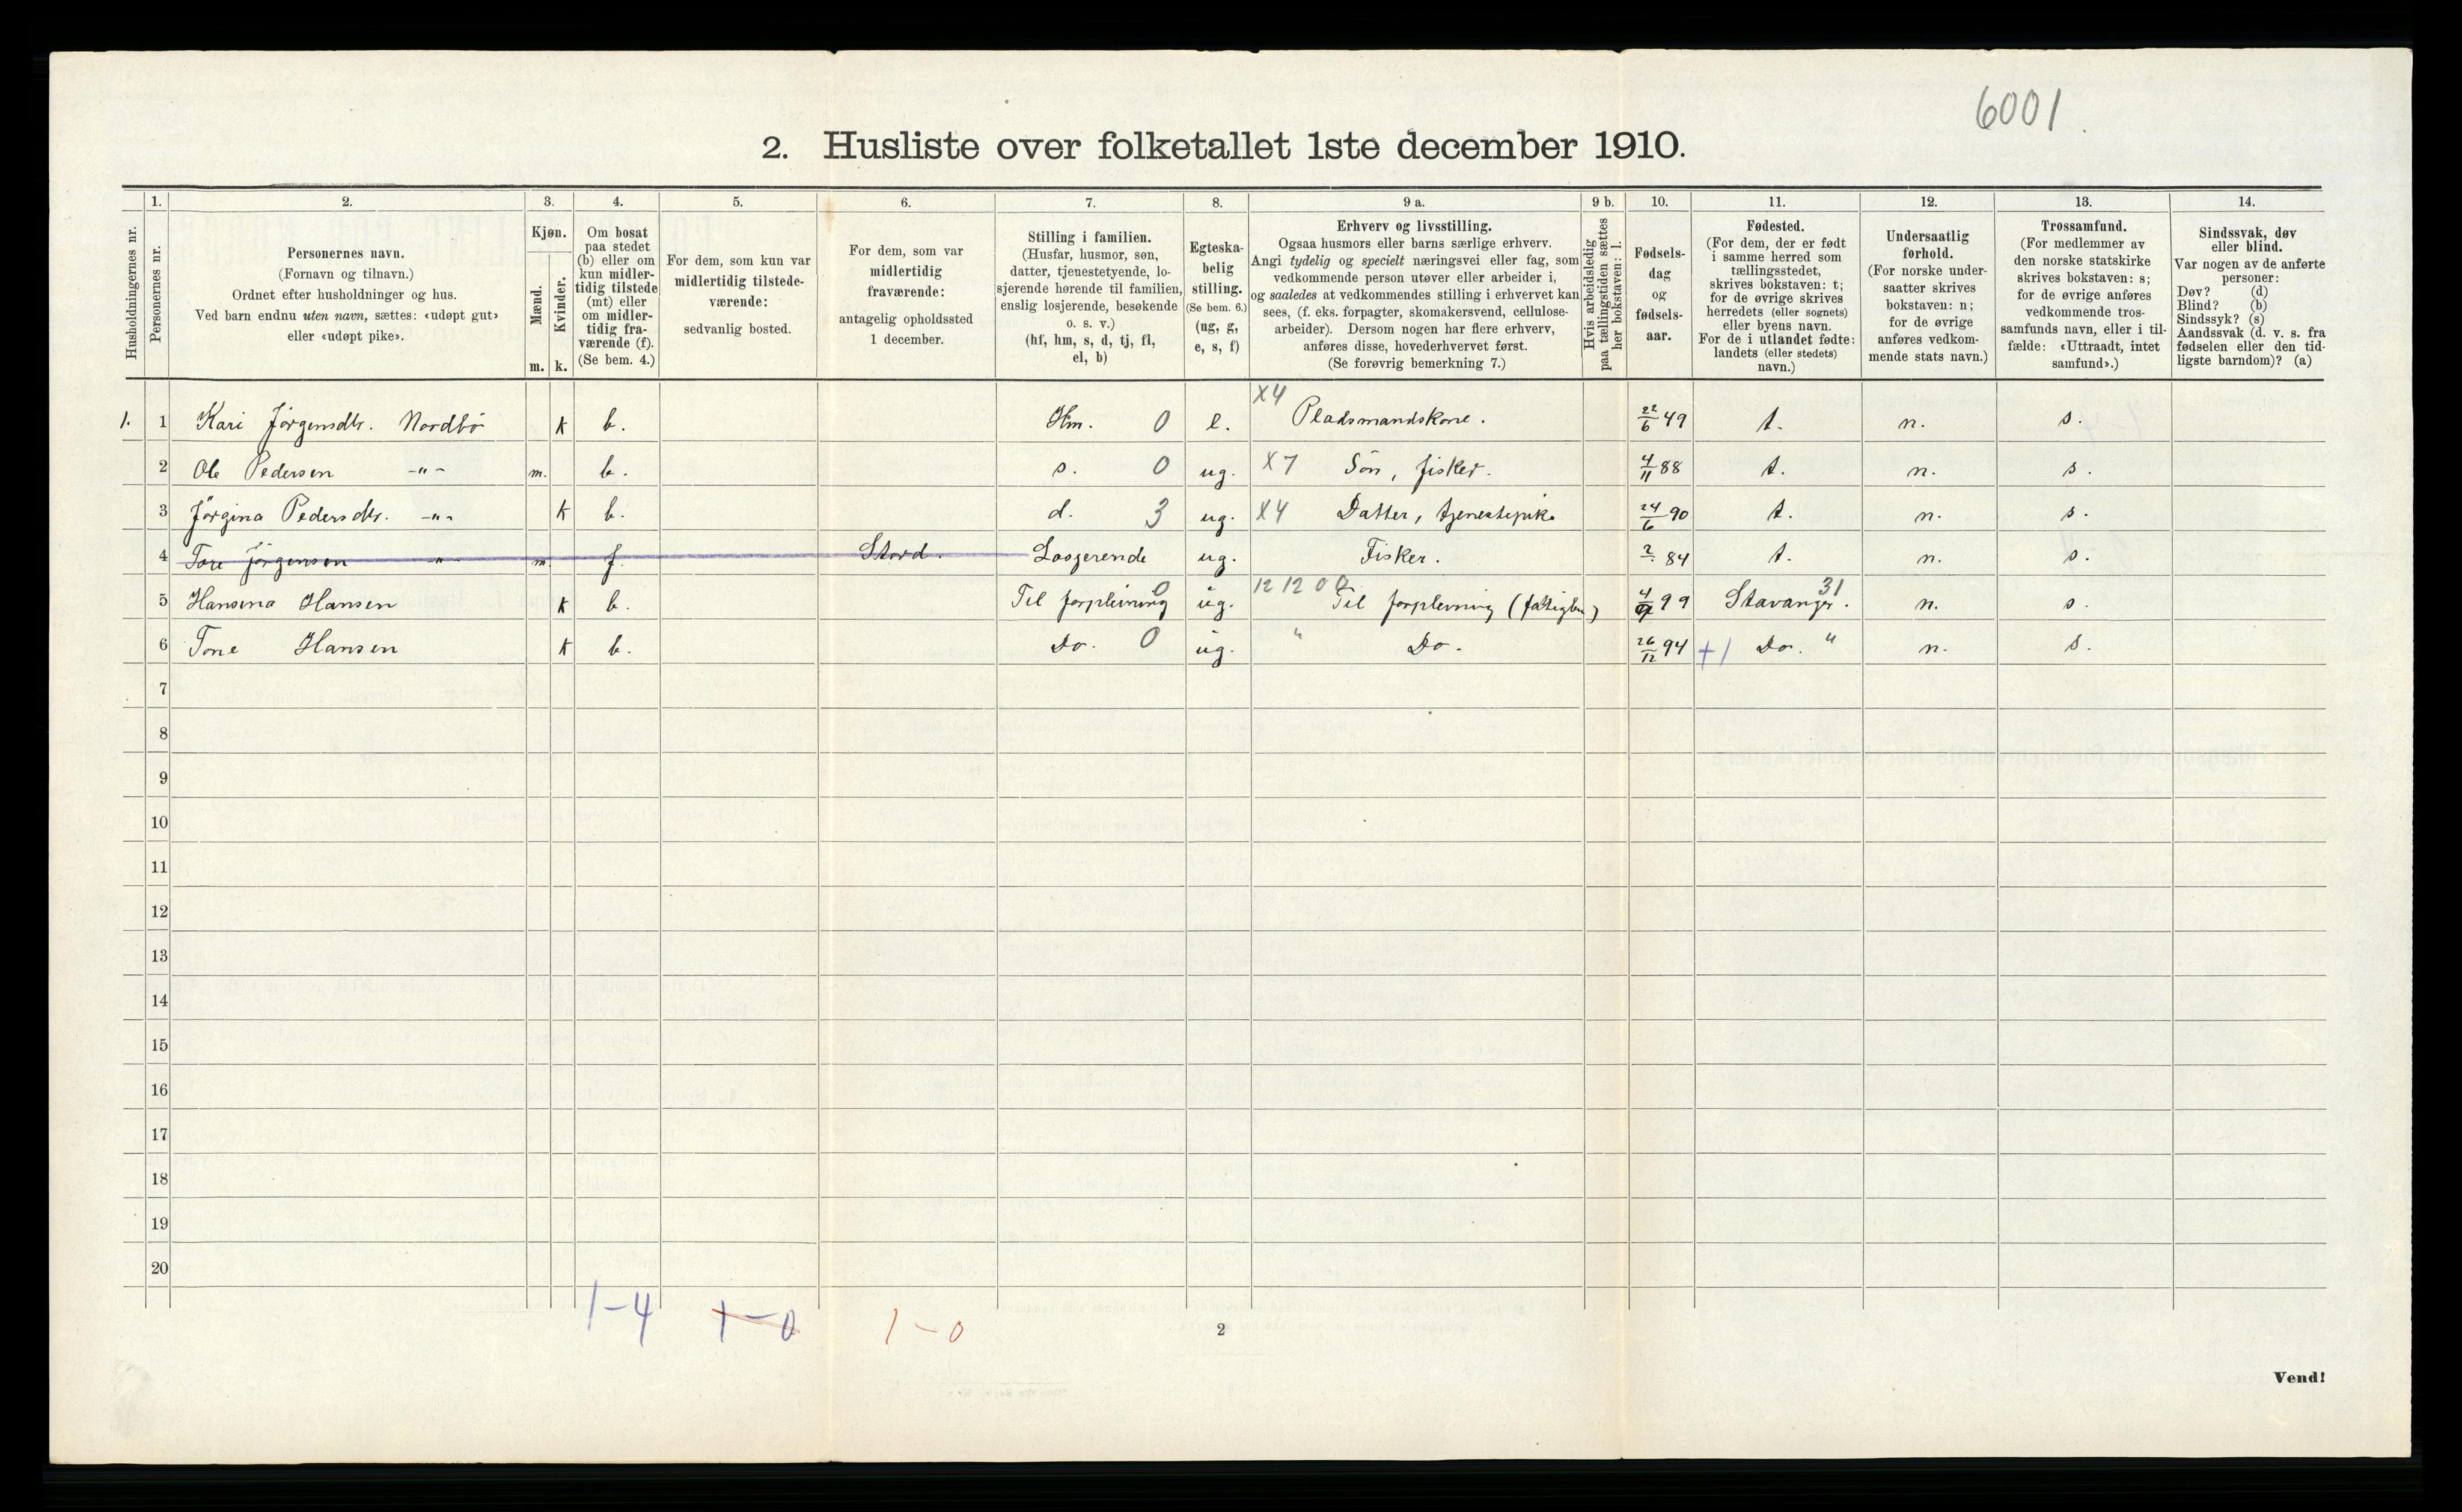 6001
2. Husliste over folketallet 1ste december 1910.
Husholdningernes nr.
1.
Personernes nr.
2.
Personernes navn.
(Fornavn og tilnavn.)
Ordnet efter husholdninger og hus.
Ved barn endnu uten navn, sættes: «udøpt gut»
eller «udøpt pike».
3.
Kjøn.
Mænd.
Kvinder.
m. k.
4.
Om bosat
paa stedet
(b) eller om
kun midler-
tidig tilstede
(mt) eller
om midler-
tidig fra-
værende (f).
(Se bem. 4.)
5.
For dem, som kun var
midlertidig tilstede-
værende:
sedvanlig bosted.
6.
For dem, som var
midlertidig
fraværende:
antagelig opholdssted
1 december.
7.
Stilling i familien.
(Husfar, husmor, søn,
datter, tjenestetyende, lo-
sjerende hørende til familien,
enslig losjerende, besøkende
o. s. v.)
(hf, hm, s, d, tj, fl,
el, b)
8.
Egteska-
belig
stilling.
(Se bem. 6.)
(ug, g,
e, s, f)
9 a.
Erhverv og livsstilling.
Ogsaa husmors eller barns særlige erhverv.
Angi tydelig og specielt næringsvei eller fag, som
vedkommende person utøver eller arbeider i,
og saaledes at vedkommendes stilling i erhvervet kan
sees, (f. eks. forpagter, skomakersvend, cellulose-
arbeider). Dersom nogen har flere erhverv,
anføres disse, hovederhvervet først.
(Se forøvrig bemerkning 7.)
9 b.
Hvis arbeidsledig
paa tællingstiden sættes
her bokstaven: l.
10.
Fødsels-
dag
og
fødsels-
aar.
11.
Fødested.
(For dem, der er født
i samme herred som
tællingsstedet,
skrives bokstaven: t;
for de øvrige skrives
herredets (eller sognets)
eller byens navn.
For de i utlandet fødte:
landets (eller stedets)
navn.)
12.
Undersaatlig
forhold.
(For norske under-
saatter skrives
bokstaven: n;
for de øvrige
anføres vedkom-
mende stats navn.)
13.
Trossamfund.
(For medlemmer av
den norske statskirke
skrives bokstaven: s;
for de øvrige anføres
vedkommende tros-
samfunds navn, eller i til-
fælde: «Uttraadt, intet
samfund».)
14.
Sindssvak, døv
eller blind.
Var nogen av de anførte
personer:
Døv? (d)
Blind? (b)
Sindssyk? (s)
Aandssvak (d. v. s. fra
fødselen eller den tid-
ligste barndom)? (a)
1. 1 Kari Jørgensdtr. Nordbø k b. Hm. 0 e. X4 Pladsmandskone. 22/6 49 t. n. s.
2 Ole Pedersen -"- m. b. s. 0 ug. X7 Søn, fisker. 4/11 88 t. n. s.
3 Jørgina Pedersdtr. -"- k b. d. 3 ug. X4 Datter, tjenestepik. 24/6 90 t. n. s.
4 Tore Jørgensen " m. f. Stord. Losjerende ug. Fisker. 2 84 t. n. s.
5 Hansina Hansen k b. Til forplevning 0 ug. 12 12 0 0 Til forplevning (fattigbu) 4/9 99 Stavanger. 31 n. s.
6 Tone Hansen k b. Do. 0 ug. " Do. 26/12 94 +1 Do. " n. s.
7
8
9
10
11
12
13
14
15
16
17
18
19
20
1-4 1-0 1-0
2
Vend!